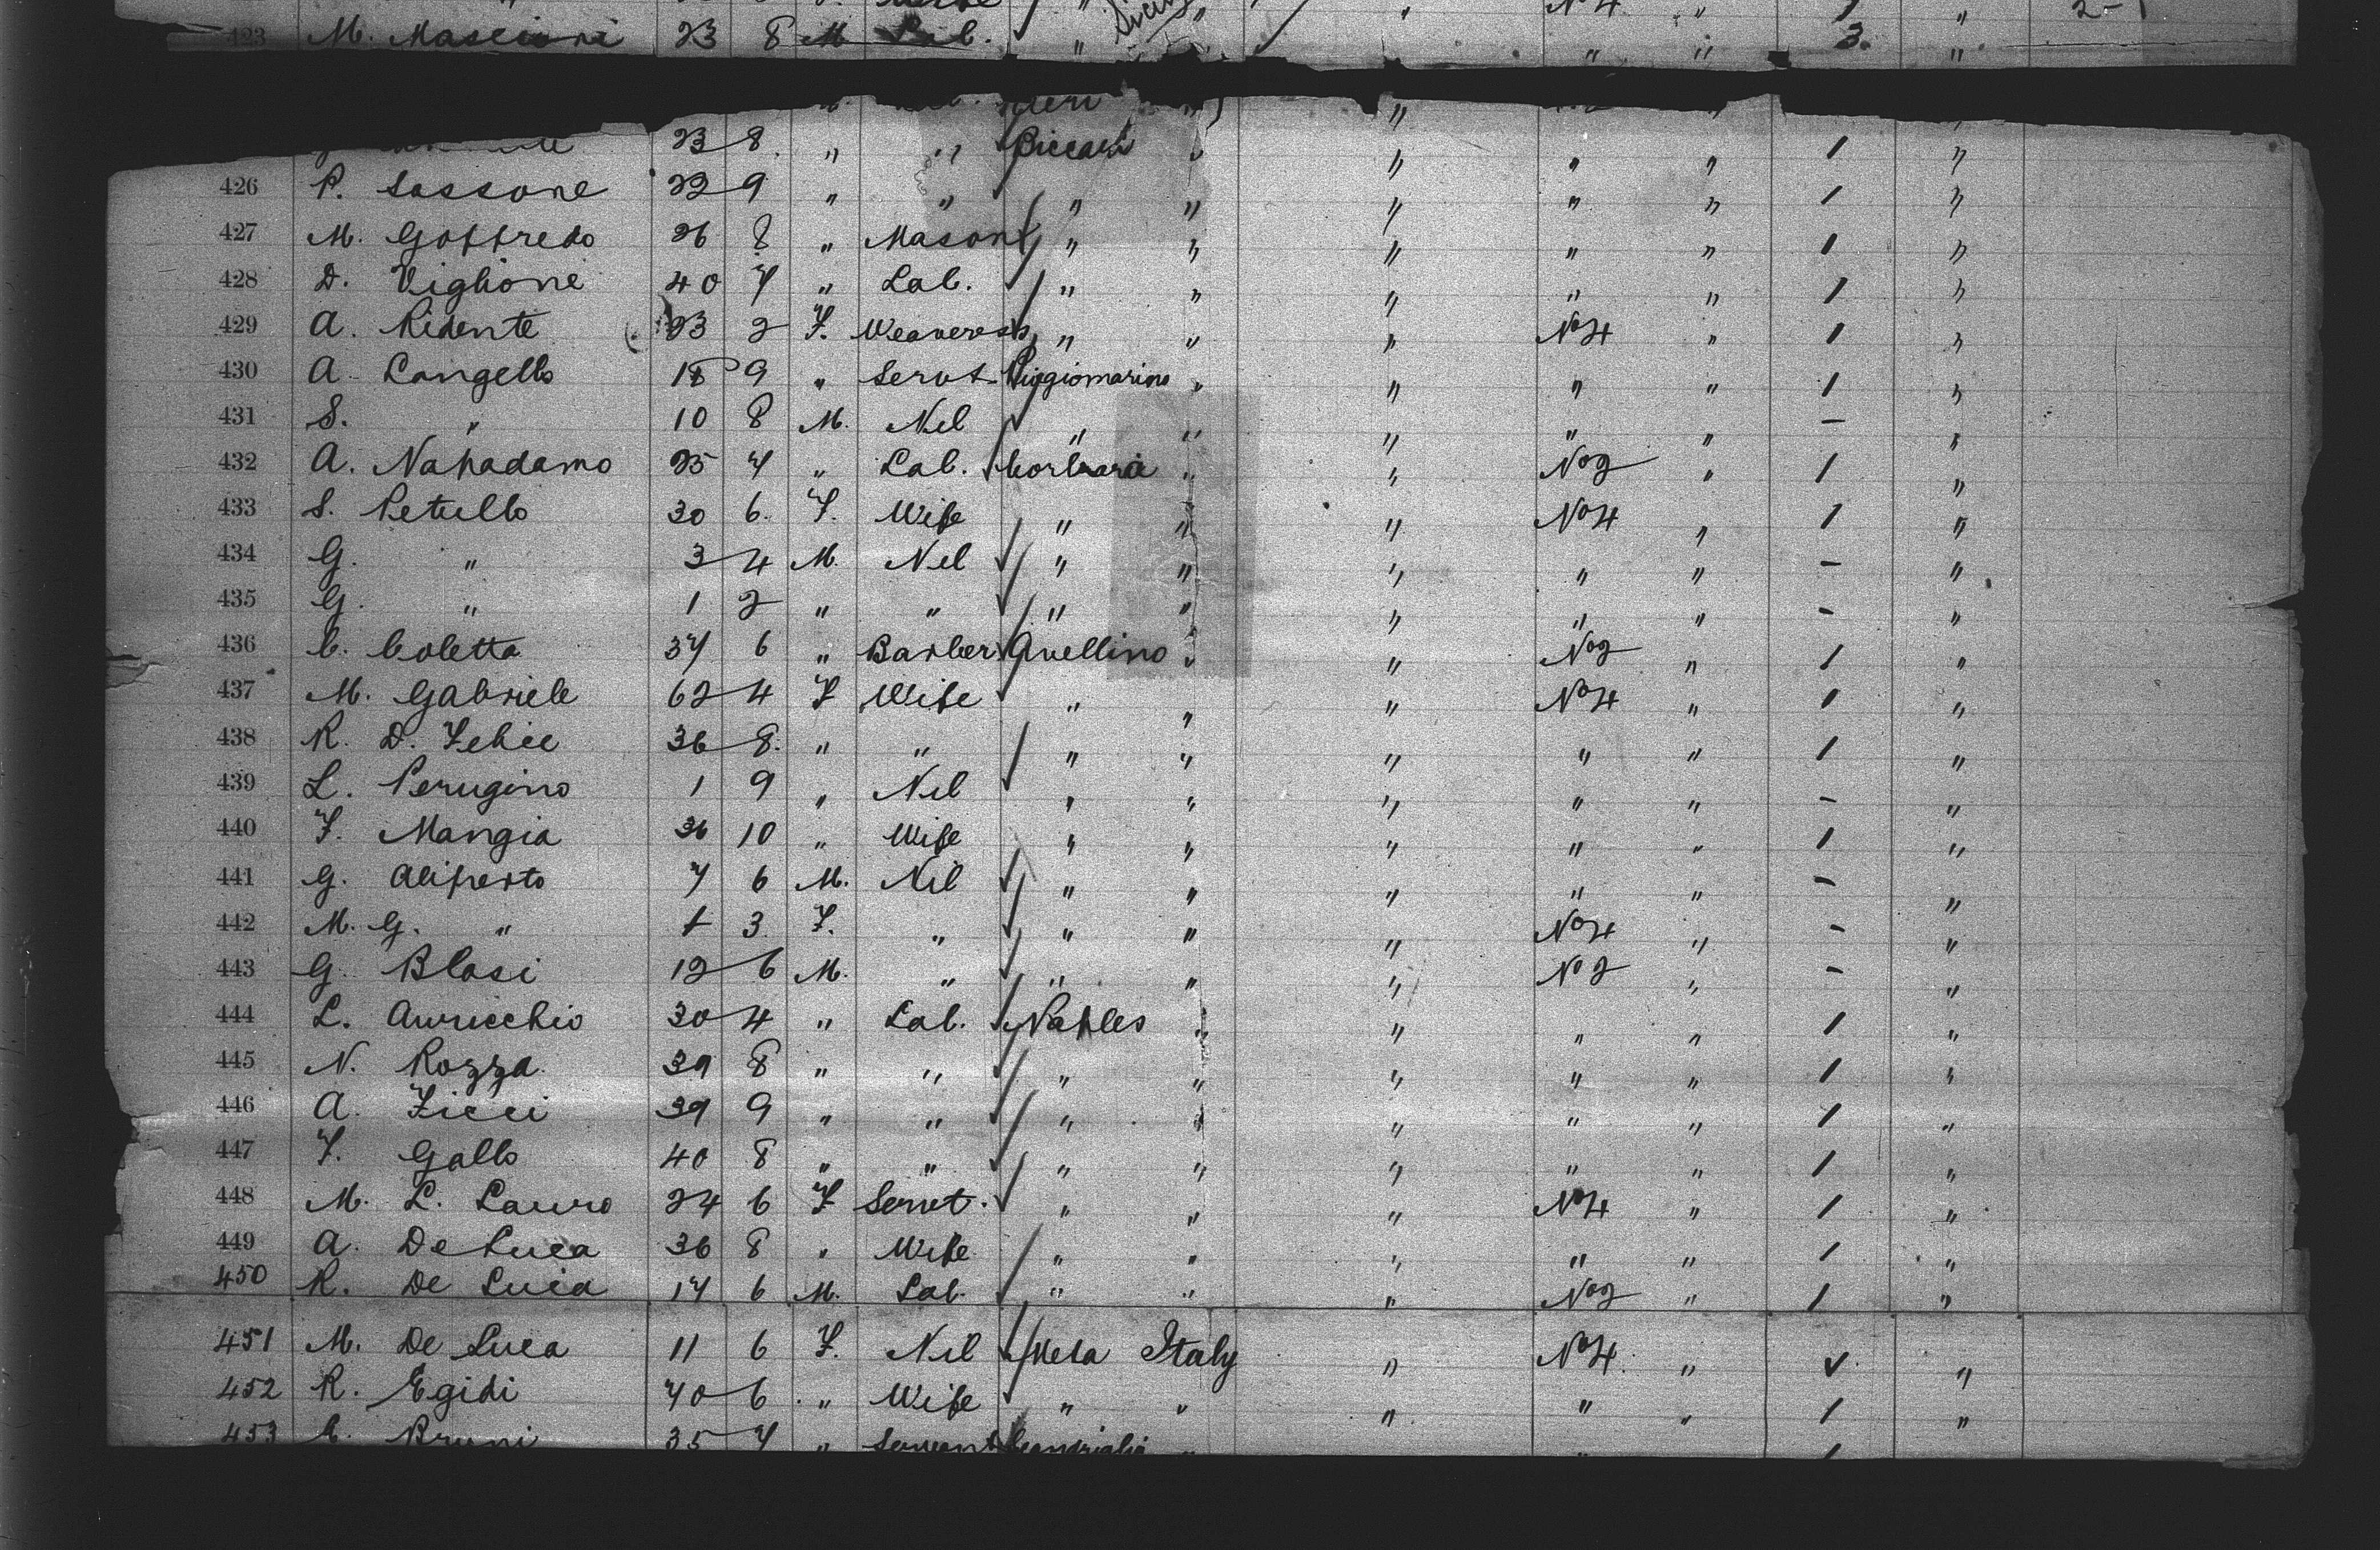 No 4 " 1 " 2-1
423 M. Mascioni 23 8 M Lab. " " " " 3. "
23 8. " " Biccari " " " " 1 "
426 P. Sassone 22 9 " " " " " " " 1 "
427 M. Goffredo 26 8 " Mason " " " " " 1 "
428 D. Viglione 40 7 " Lab. " " " " " 1 "
429 A. Ridente 23 2 F. Weaveress " " " No 4 " 1 "
430 A. Langello 18 9 " Servt. " " " " 1 "
431 S. " 10 8 M. Nil " " " " " - "
432 A. Napadamo 25 7 " Lab. Corbara " " No 2 " 1 "
433 S. Petullo 30 6. F. Wife " " " No 4 " 1 "
434 G. " 3 4 M. Nil " " " " " - "
435 G. " 1 2 " " " " " " " - "
436 C. Coletta 37 6 " Barber Avellino " " No 2 " 1 "
437 M. Gabriele 62 4 F Wife " " " No 4 " 1 "
438 R. D. Felice 36 8. " " " " " " " 1 "
439 L. Perugino 1 9 " Nil " " " " " - "
440 F. Mangia 36 10 " Wife " " " " " 1 "
441 G. Aliperto 7 6 M. Nil " " " " " - "
442 M. G. " 1 3. F. " " " " No 4 " - "
443 G. Blasi 12 6 M. " " " " No 2 " - "
444 L. Auricchio 30 4 " Lab. Naples " " " " 1 "
445 N. Rozza. 39 8 " " " " " " " 1 "
446 A. Ficci 39 9 " " " " " " " 1 "
447 F. Gallo 40 8 " " " " " " " 1 "
448 M. L. Lauro 24 6 F Servt. " " " No 4 " 1 "
449 A. De Luca 36 8 " Wife " " " " " 1 "
450 R. De Luca 17 6 M. Lab. " " " No 2 " 1 "
451 M. De Luca 11 6 F. Nil Meta Italy " No 4. " "
452 R. Egidi 40 6 " Wife " " " " " 1 "
453 Bruni 35 7 " Servant " " 1